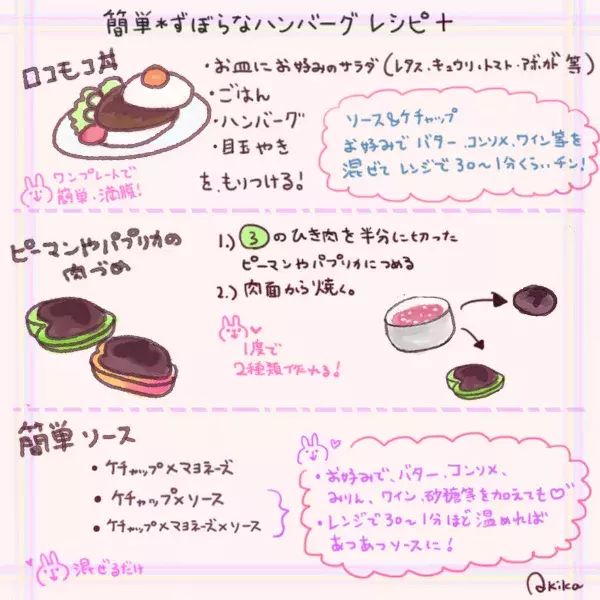 簡単*ずぼらなハンバーグ レシピ+
ロコモコ丼
・お皿にお好みのサラダ (レタス・キュウリ・トマト・アボガド 等)
・ごはん
・ハンバーグ
・目玉やき
を、もりつける!
ワンプレートで
簡単・満腹!
ソース&ケチャップ
お好みで バター、コンソメ、ワイン等を
混ぜて レンジで30〜1分くらいチン!
ピーマンやパプリカの
肉づめ
1.) ③ のひき肉を半分に切った
ピーマンやパプリカにつめる
2.) 肉面から焼く。
1度で
2種類作れる!
簡単 ソース
・ケチャップ×マヨネーズ
・ケチャップ×ソース
・ケチャップ×マヨネーズ×ソース
混ぜるだけ
・お好みで、バター、コンソメ、
みりん、ワイン、砂糖等を加えても♡
・レンジで30〜1分ほど温めれば
あつあつソースに!
Akika